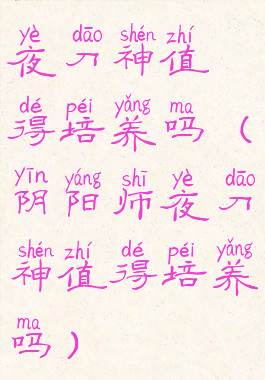 yè dāo shén zhí
夜刀神值
dé péi yǎng ma
得培养吗（
yīn yáng shī yè dāo
阴阳师夜刀
shén zhí dé péi yǎng
神值得培养
ma
吗）